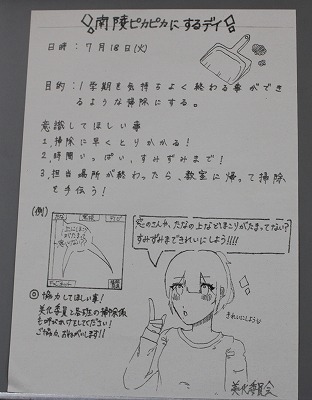 南陵ピカピカにするデイ
日時：7月18日(火)
目的：1学期を気持ちよく終わる事ができ
るような掃除にする。
意識してほしい事
1.掃除に早くとりかかる！
2.時間いっぱい、すみずみまで！
3.担当場所が終わったら、教室に帰って掃除
を手伝う！
(例)
窓のさんや、たなの上などほこりがたまってない？
すみずみまできれいにしよう!!!!
◎協力してほしい事！
美化委員と各班の掃除係
も呼びかけをしてください！
ご協力、おねがいします!!
きれいにしよう
美化委員会